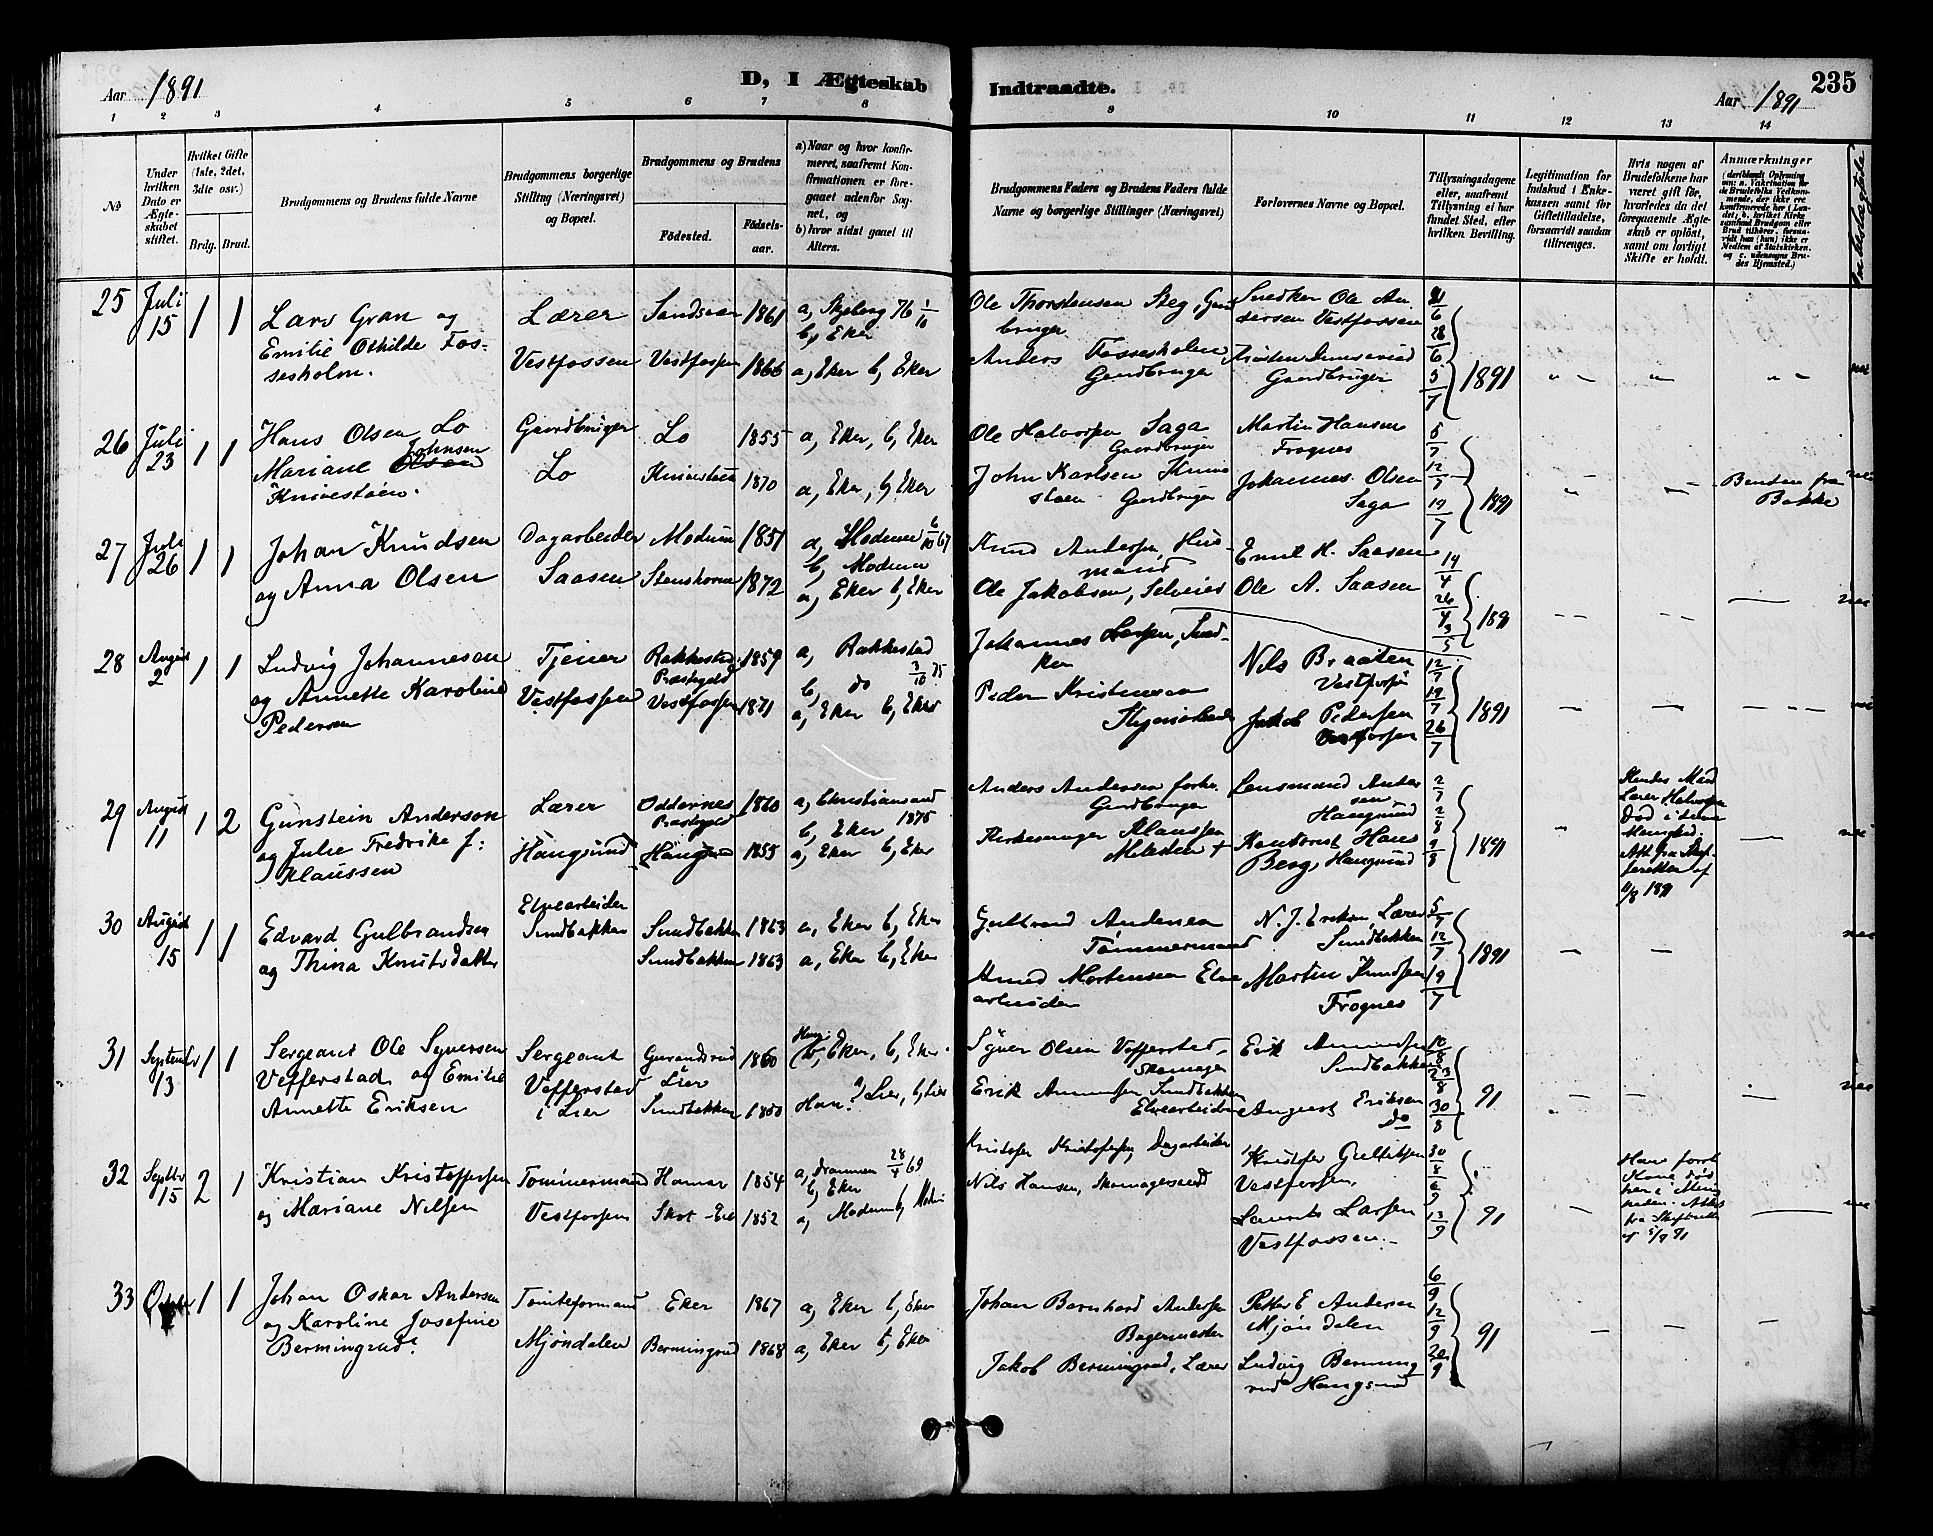 Aar 1891
D, I Ægteskab
Indtraadte.
Aar 1891
235
1 2 3 4 5 6 7 8 9 10 11 12 13 14
No
Under hvilken Dato er Ægteskabet stiftet.
Hvilket Gifte (1ste, 2det, 3die osv.)
Brdg. Brud.
Brudgommens og Brudens fulde Navne
Brudgommens borgerlige Stilling (Næringsvei) og Bopæl.
Brudgommens og Brudens
Fødested.
Fødselsaar.
a) Naar og hvor konfirmeret, saafremt Konfirmationen er foregaaet udenfor Sognet, og
b) hvor sidst gaaet til Alters.
Brudgommens Faders og Brudens Faders fulde Navne og borgerlige Stillinger (Næringsvei)
Forlovernes Navne og Bopæl.
Tillysningsdagene eller, saafremt Tillysning ei har fundet Sted, efter hvilken Bevilling.
Legitimation for Indskud i Enkekassen samt for Giftetilladelse, forsaavidt saadan tiltrænges.
Hvis nogen af Brudefolkene har været gift før, hvorledes da det foregaaende Ægteskab er opløst, samt om lovligt Skifte er holdt.
Anmærkninger
25 Juli 15 1 1
Lars Gran og
Emilie Othilde Fossesholm.
Lærer
Vestfossen
Sandsvær 1861
Vestfossen 1866
a, Skjeberg 76 1/10
b, Eker
a, Eker b, Eker
Ole Thorstensen Steg, Gaardbruger
Anders Fossesholm
Gaardbruger
Snedker Ole Andersen Vestfossen
Gaardbruger
21/6 28/6 5/7 1891
26 Juli 23 1 1
Hans Olsen Lo
Mariane Olsen Johnsen
Knivestøen.
Gaardbruger
Lo
Lo 1855
Knivestøen 1870
a, Eker, b, Eker
a, Eker, b, Eker
Ole Halvorsen Saga
Gaardbruger
John Karlsen Knivestøen Gaardbruger
Martin Hansen
Frognes
Johannes Olsen
Saga
5/7 12/7 19/7 1891
Bruden fra
Bakke
27 Juli 26 1 1
Johan Knudsen
og Anna Olsen
Dagarbeider
Saasen
Modum 1851
1872
a, Modum 6/10 67
b, Modum
a, Eker b, Eker
Knud Andersen, Husmand
Ole Jakobsen, Selveier
Emil H. Saasen
Ole A. Saasen
19/4 26/4 3/5 1891
28 August 2 1 1
Ludvig Johannesen
og Annette Karoline
Pedersen
Tjener
Vestfossen
Rakkestad Præstegjeld 1859
Vestfossen 1871
a, Rakkestad
b, do 3/10 75
a, Eker b, Eker
Johannes Larsen, Snedker
Peder Kristensen
Nils Braaten
Vestfossen
Jakob Pedersen
Vestfossen
12/7 19/7 26/7 1891
29 August 11 1 2
Gunstein Andersen
og Julie Fredrike f:
Klaussen
Lærer
Hougsund
Oddernes Præstegjeld 1860
Hougsund 1855
a, Christiansand 1875
b, Eker
a, Eker b, Eker
Anders Andersen forhv.
Gaardbruger
Kirkesanger Klaussen
Lensmand Andersen
Hougsund
Kontorist Hans
Berg, Hougsund
2/7 2/8 9/8 1891
Hendes Mand
Lærer Halvorsen
Død i denne
Menighed.
Att. fra Skifteretten af
11/8 1891
30 August 15 1 1
Edvard Gulbrandsen
og Thina Knutsdatter
Elvearbeider
Sundbakken
Sundbakken 1863
Sundbakken 1863
a, Eker b, Eker
a, Eker b, Eker
Gulbrand Andersen
Tømmermand
Knud Mortensen Elvearbeider
N. J. Eriksen, Lærer
Sundbakken
Martin Knudsen
Frognes
5/7 12/7 19/7 1891
31 September 13 1 1
Sergeant Ole Syversen
Vefferstad og Emilie
Annette Eriksen
Sergeant
Vefferstad
i Lier
Lier 1860
Sundbakken 1860
Eker, b, Eker
a, Lier, b, Lier
Syver Olsen Vefferstad,
Skomager
Erik Amundsen Sundbakken
Elvearbeider
Erik Amundsen
Sundbakken
August Eriksen
do
16/8 23/8 30/8 91
32 Septbr 15 2 1
Kristian Kristoffersen
og Mariane Nilsen
Tømmermand
Vestfossen
Hamar 1854
1852
a, Drammen 28/4 69
b, Eker
a, Modum b,
Kristofer Kristofersen, Dagarbeider
Nils Hansen, Skomagersvend
Kristofer Gulliksen
Vestfossen,
Laurits Larsen
Vestfossen.
30/8 6/9 13/9 91
Hans første
Kone død
her i Menigheden. Attest
fra Skifteretten
af 5/9 91
33 1 1
Johan Oskar Andersen
og Karoline Josefine
Bermingrud.
Tomteformand
Mjøndalen
Eker 1867
Bermingrud 1868
a, Eker b, Eker
a, Eker b, Eker
Johan Bernhard Andersen
Bagermester
Jakob Bermingrud, Lærer
Petter E Andersen
Mjøndalen
Ludvig Bermingrud Hougsund
6/9 12/9 20/9 91